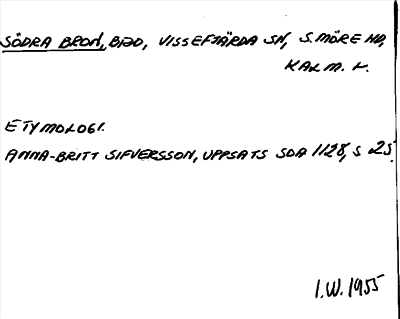 SÖDRA BRON, BDD, VISSEFJÄRDA SN, S. MÖRE HD,
KALM. L.
ETYMOLOGI.
ANNA-BRITT SIFVERSSON, UPPSATS SDA 1128, S 25.
I.W. 1955